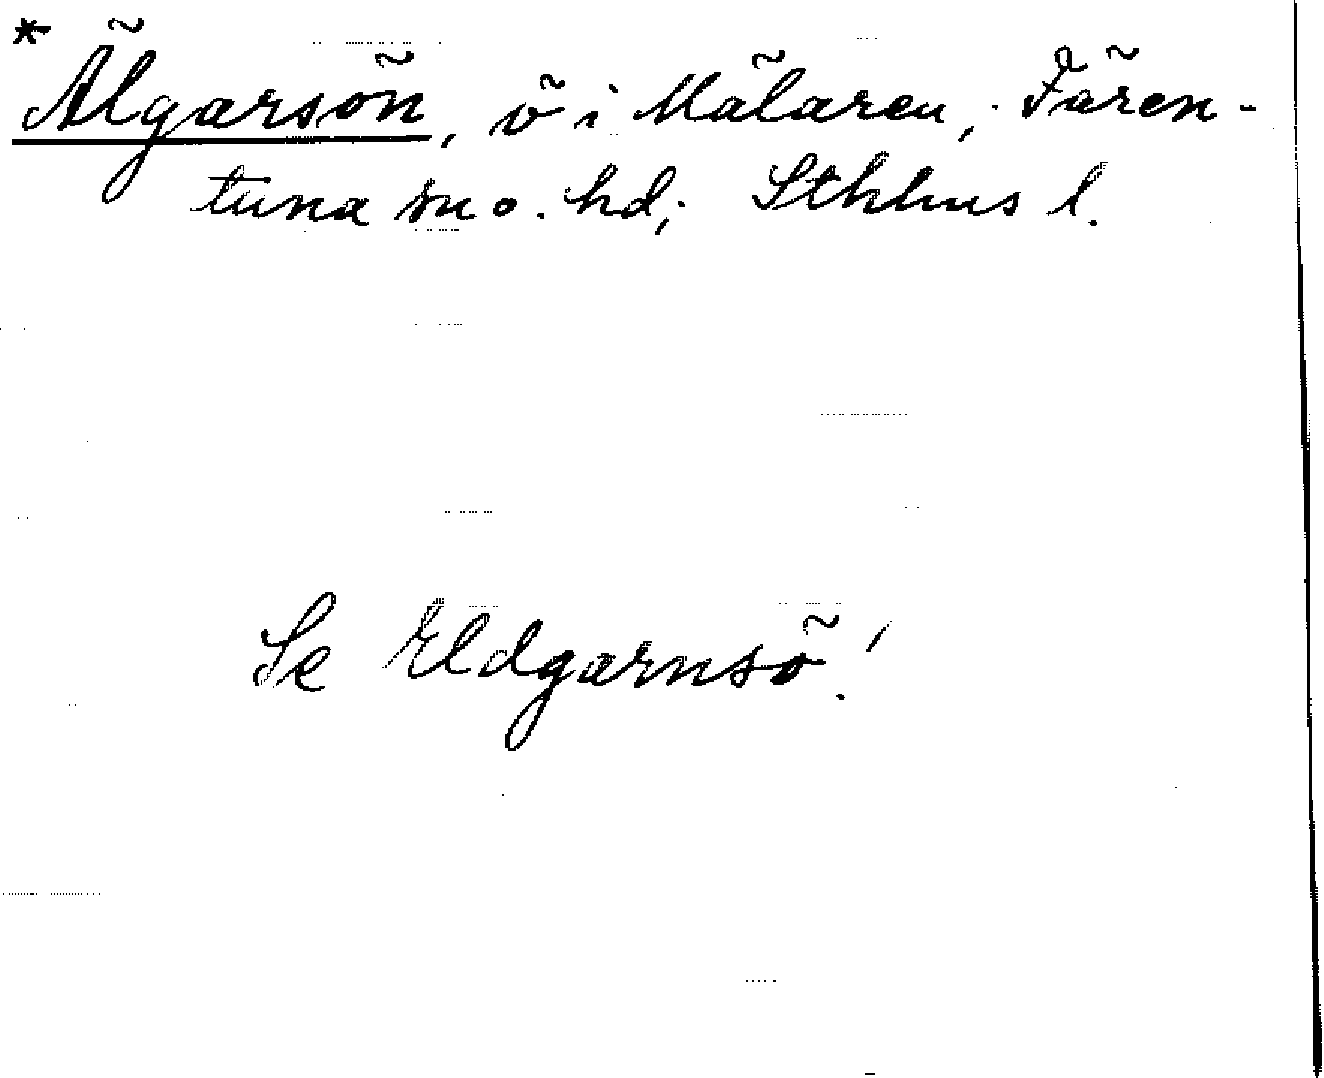 * Älgarsön, ö i Mälaren, Fären-
tuna sn o. hd; Sthlms l.
Se Eldgarnsö!